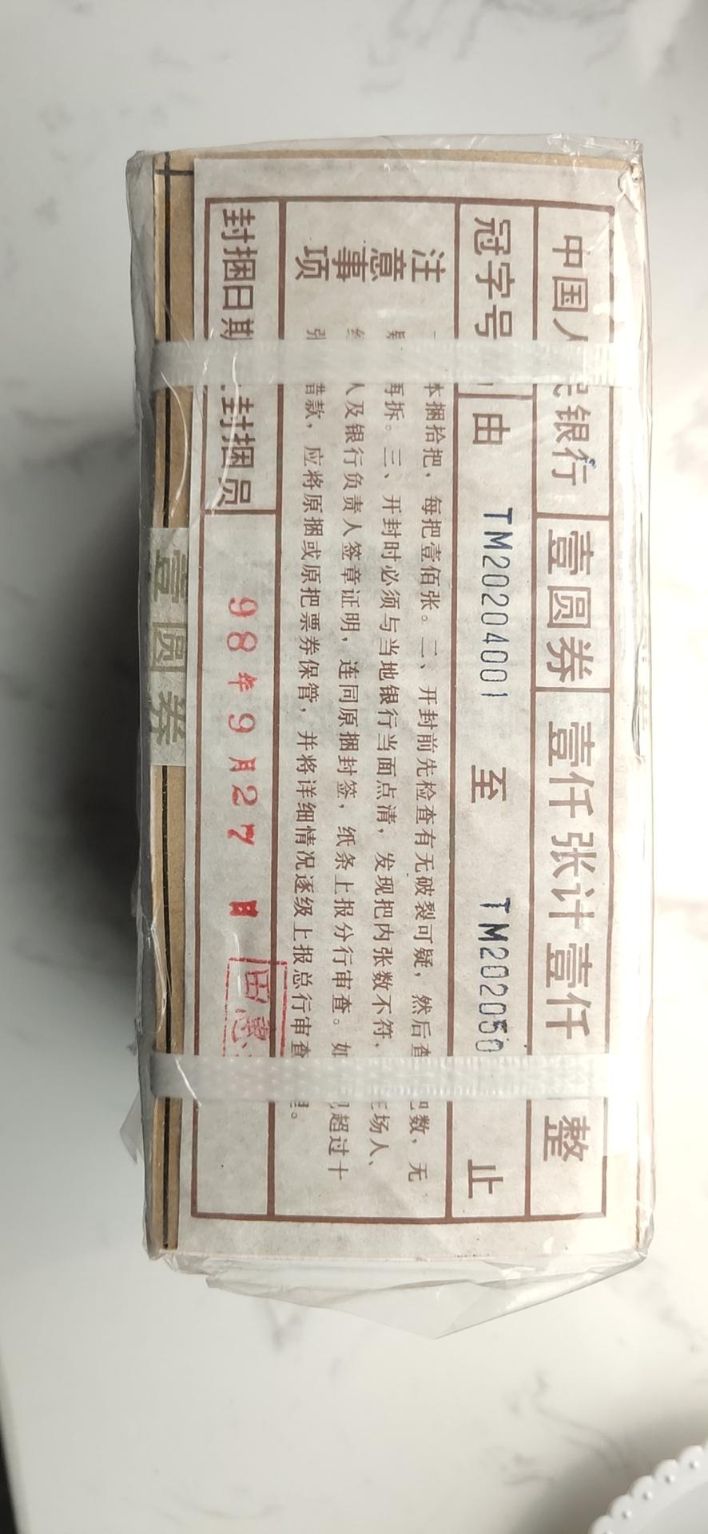 中国人民银行 壹圆券 壹仟张计壹仟 整
冠字号 由 TM20204001 至 TM202050 止
注意事项
本捆拾把，每把壹佰张。二、开封前先检查有无破裂可疑，然后查 把数，无
疑 再拆。三、开封时必须与当地银行当面点清，发现把内张数不符， 在场人、
人及银行负责人签章证明，连同原捆封签，纸条上报分行审查。如 超过十
张 错款，应将原捆或原把票券保管，并将详细情况逐级上报总行审查 理。
封捆日期 封捆员 98年9月27日 田惠
壹圆券